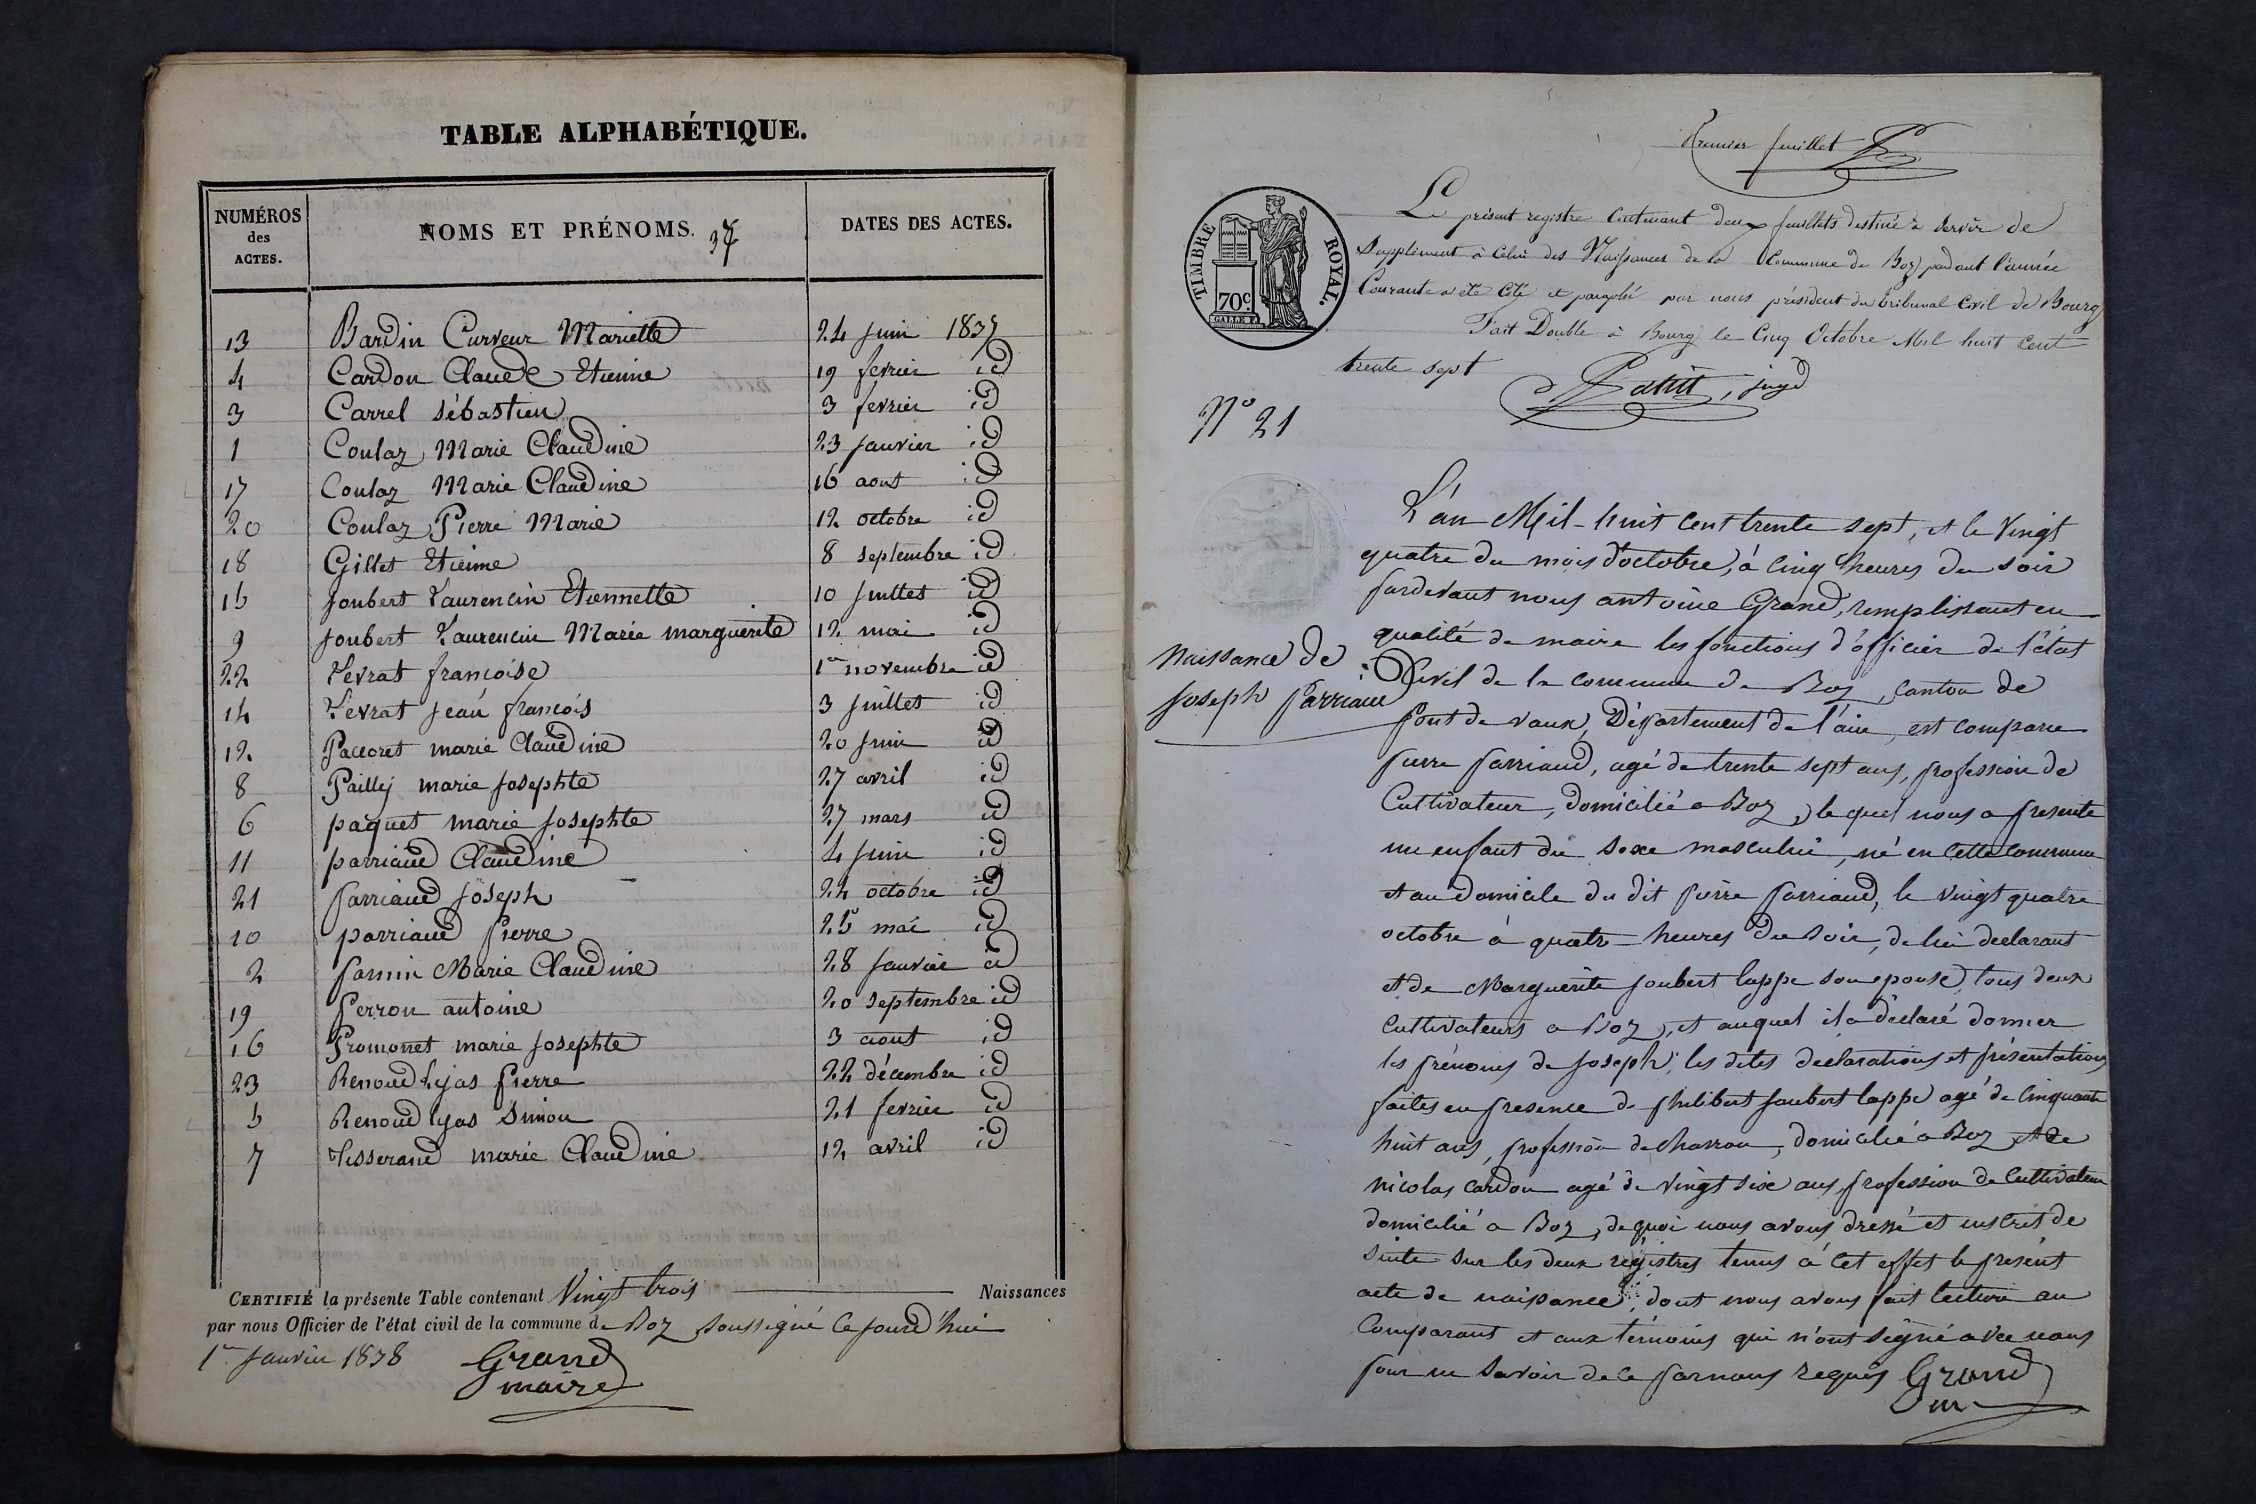 TABLE ALPHABÉTIQUE.
NUMÉROS des ACTES.
NOMS ET PRÉNOMS. 37
DATES DES ACTES.
13 Bardin Curveur Mariette 24 juin 1837
4 Cardon Claude Etienne 19 fevrier id
3 Carrel sébastien 3 fevrier id
1 Coulaz Marie Claudine 23 janvier id
17 Coulaz Marie Claudine 16 aout id
20 Coulaz Pierre Marie 12 octobre id
18 Gillet Etienne 8 septembre id
15 joubert Laurencin Etiennette 10 juillet id
9 joubert Laurencin Marie marguerite 12 mai id
22 Levrat françoise 1er novembre id
14 Levrat jean françois 3 juillet id
12 Paccoret marie Claudine 20 juin id
8 Pailly marie josephte 27 avril id
6 paquet marie josephte 27 mars id
11 parriaud Claudine 4 juin id
21 parriaud joseph 24 octobre id
10 parriaud pierre 25 mai id
2 pannin Marie Claudine 28 janvier id
19 perron antoine 20 septembre id
16 Promonet marie josephte 3 aout id
23 Renoud Lyas pierre 22 décembre id
5 Renoud lyas simon 21 fevrier id
7 Tisserand marie Claudine 12 avril id
CERTIFIÉ la présente Table contenant Vingt trois Naissances
par nous Officier de l'état civil de la commune de Boz soussigné ce jourd'hui
1er janvier 1838 Grand
maire
Premier feuillet
TIMBRE ROYAL.
70c.
Le présent registre Contenant deux feuillets destiné à servir de
Supplément à Celui des Naissances de la Commune de Boz pendant l'année
Courante a été Coté et paraphé par nous président du tribunal Civil de Bourg
Fait Double à Bourg le Cinq Octobre Mil huit Cent
trente sept
juge
N° 21
L'an Mil-huit Cent trente sept, et le vingt
quatre du mois d'octobre, à Cinq heures du soir
pardevant nous antoine Grand, remplissant en
qualité de maire les fonctions d'officier de l'état
Civil de la commune de Boz, Canton de
pont de vaux, Département de l'ain, est comparu
pierre parriaud, agé de trente sept ans, profession de
Cultivateur, domicilié a Boz, le quel nous a presenté
un enfant du sexe masculin, né en cette commune
et au domicile du dit pierre parriaud, le vingt quatre
octobre à quatre heures du soir, de lui declarant
et de Marguerite joubert lappe son epouse, tous deux
Cultivateurs a Boz, et auquel il a déclaré donner
les prénoms de joseph, les dites declarations et présentations
faites en presence de philibert joubert lappe agé de Cinquante
huit ans, profession de charron, domicilié a Boz et de
nicolas cardon agé de vingt six ans, profession de Cultivateur
domicilié a Boz, de quoi nous avons dressé et inscrit de
suite sur les deux régistres tenus à cet effet le présent
acte de naissance, dont nous avons fait lecture au
Comparant et aux témoins qui n'ont signé avec nous
pour ne savoir de ce par nous requis Grand
Naissance de
joseph parriaud